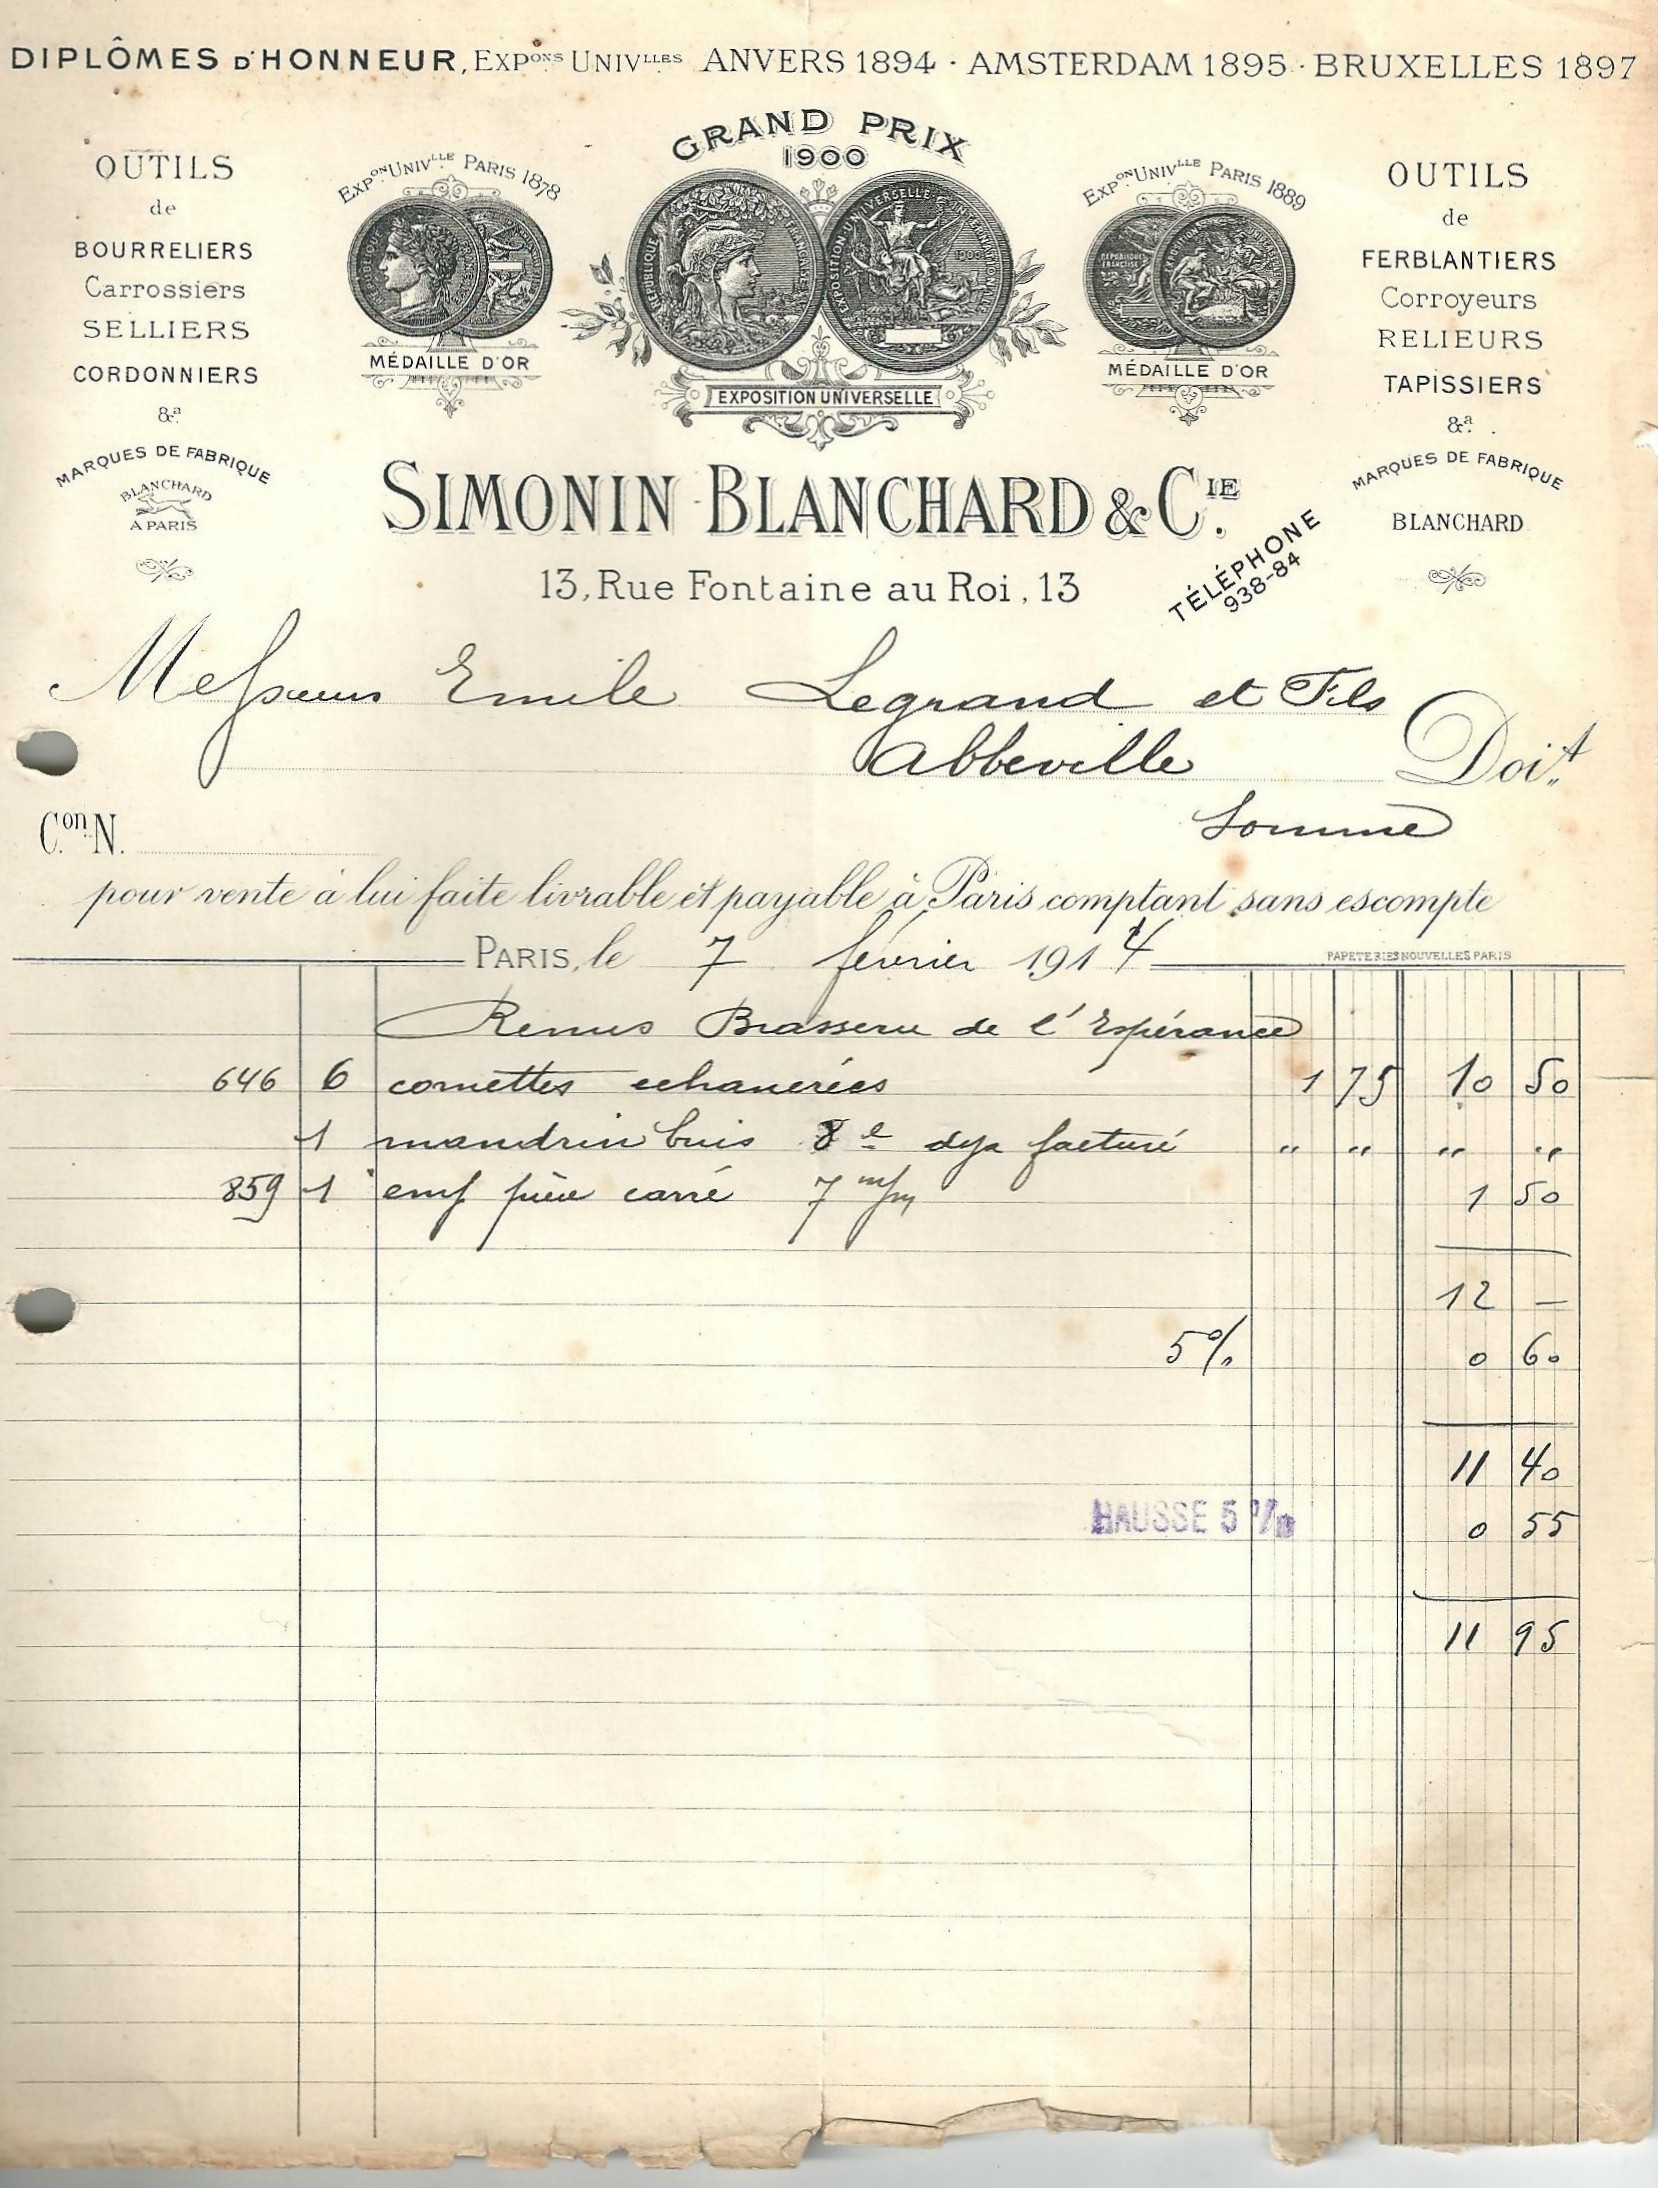 DIPLÔMES D'HONNEUR, EXPons UNIVlles ANVERS 1894 · AMSTERDAM 1895 · BRUXELLES 1897
GRAND PRIX
1900
EXPon UNIVlle PARIS 1878
EXPon UNIVlle PARIS 1889
OUTILS
de
BOURRELIERS
Carrossiers
SELLIERS
CORDONNIERS
&a.
MARQUES DE FABRIQUE
BLANCHARD
A PARIS
MÉDAILLE D'OR
EXPOSITION UNIVERSELLE
MÉDAILLE D'OR
OUTILS
de
FERBLANTIERS
Corroyeurs
RELIEURS
TAPISSIERS
&a.
MARQUES DE FABRIQUE
BLANCHARD
SIMONIN BLANCHARD & CIE.
13, Rue Fontaine au Roi, 13
TÉLÉPHONE
938-84
Messieurs Emile Legrand et Fils
Abbeville Doit
Somme
Con. N.
pour vente à lui faite livrable et payable à Paris comptant sans escompte
PARIS, le 7 février 1914
PAPETERIES NOUVELLES PARIS
Remis Brasserie de l'Espérance
646 6 cornettes echancrées 1 75 10 50
1 mandrin buis 8 e deja facturé " " " "
859 1 carré 7 m/m 1 50
12 —
5% 0 60
11 40
HAUSSE 5 % 0 55
11 95